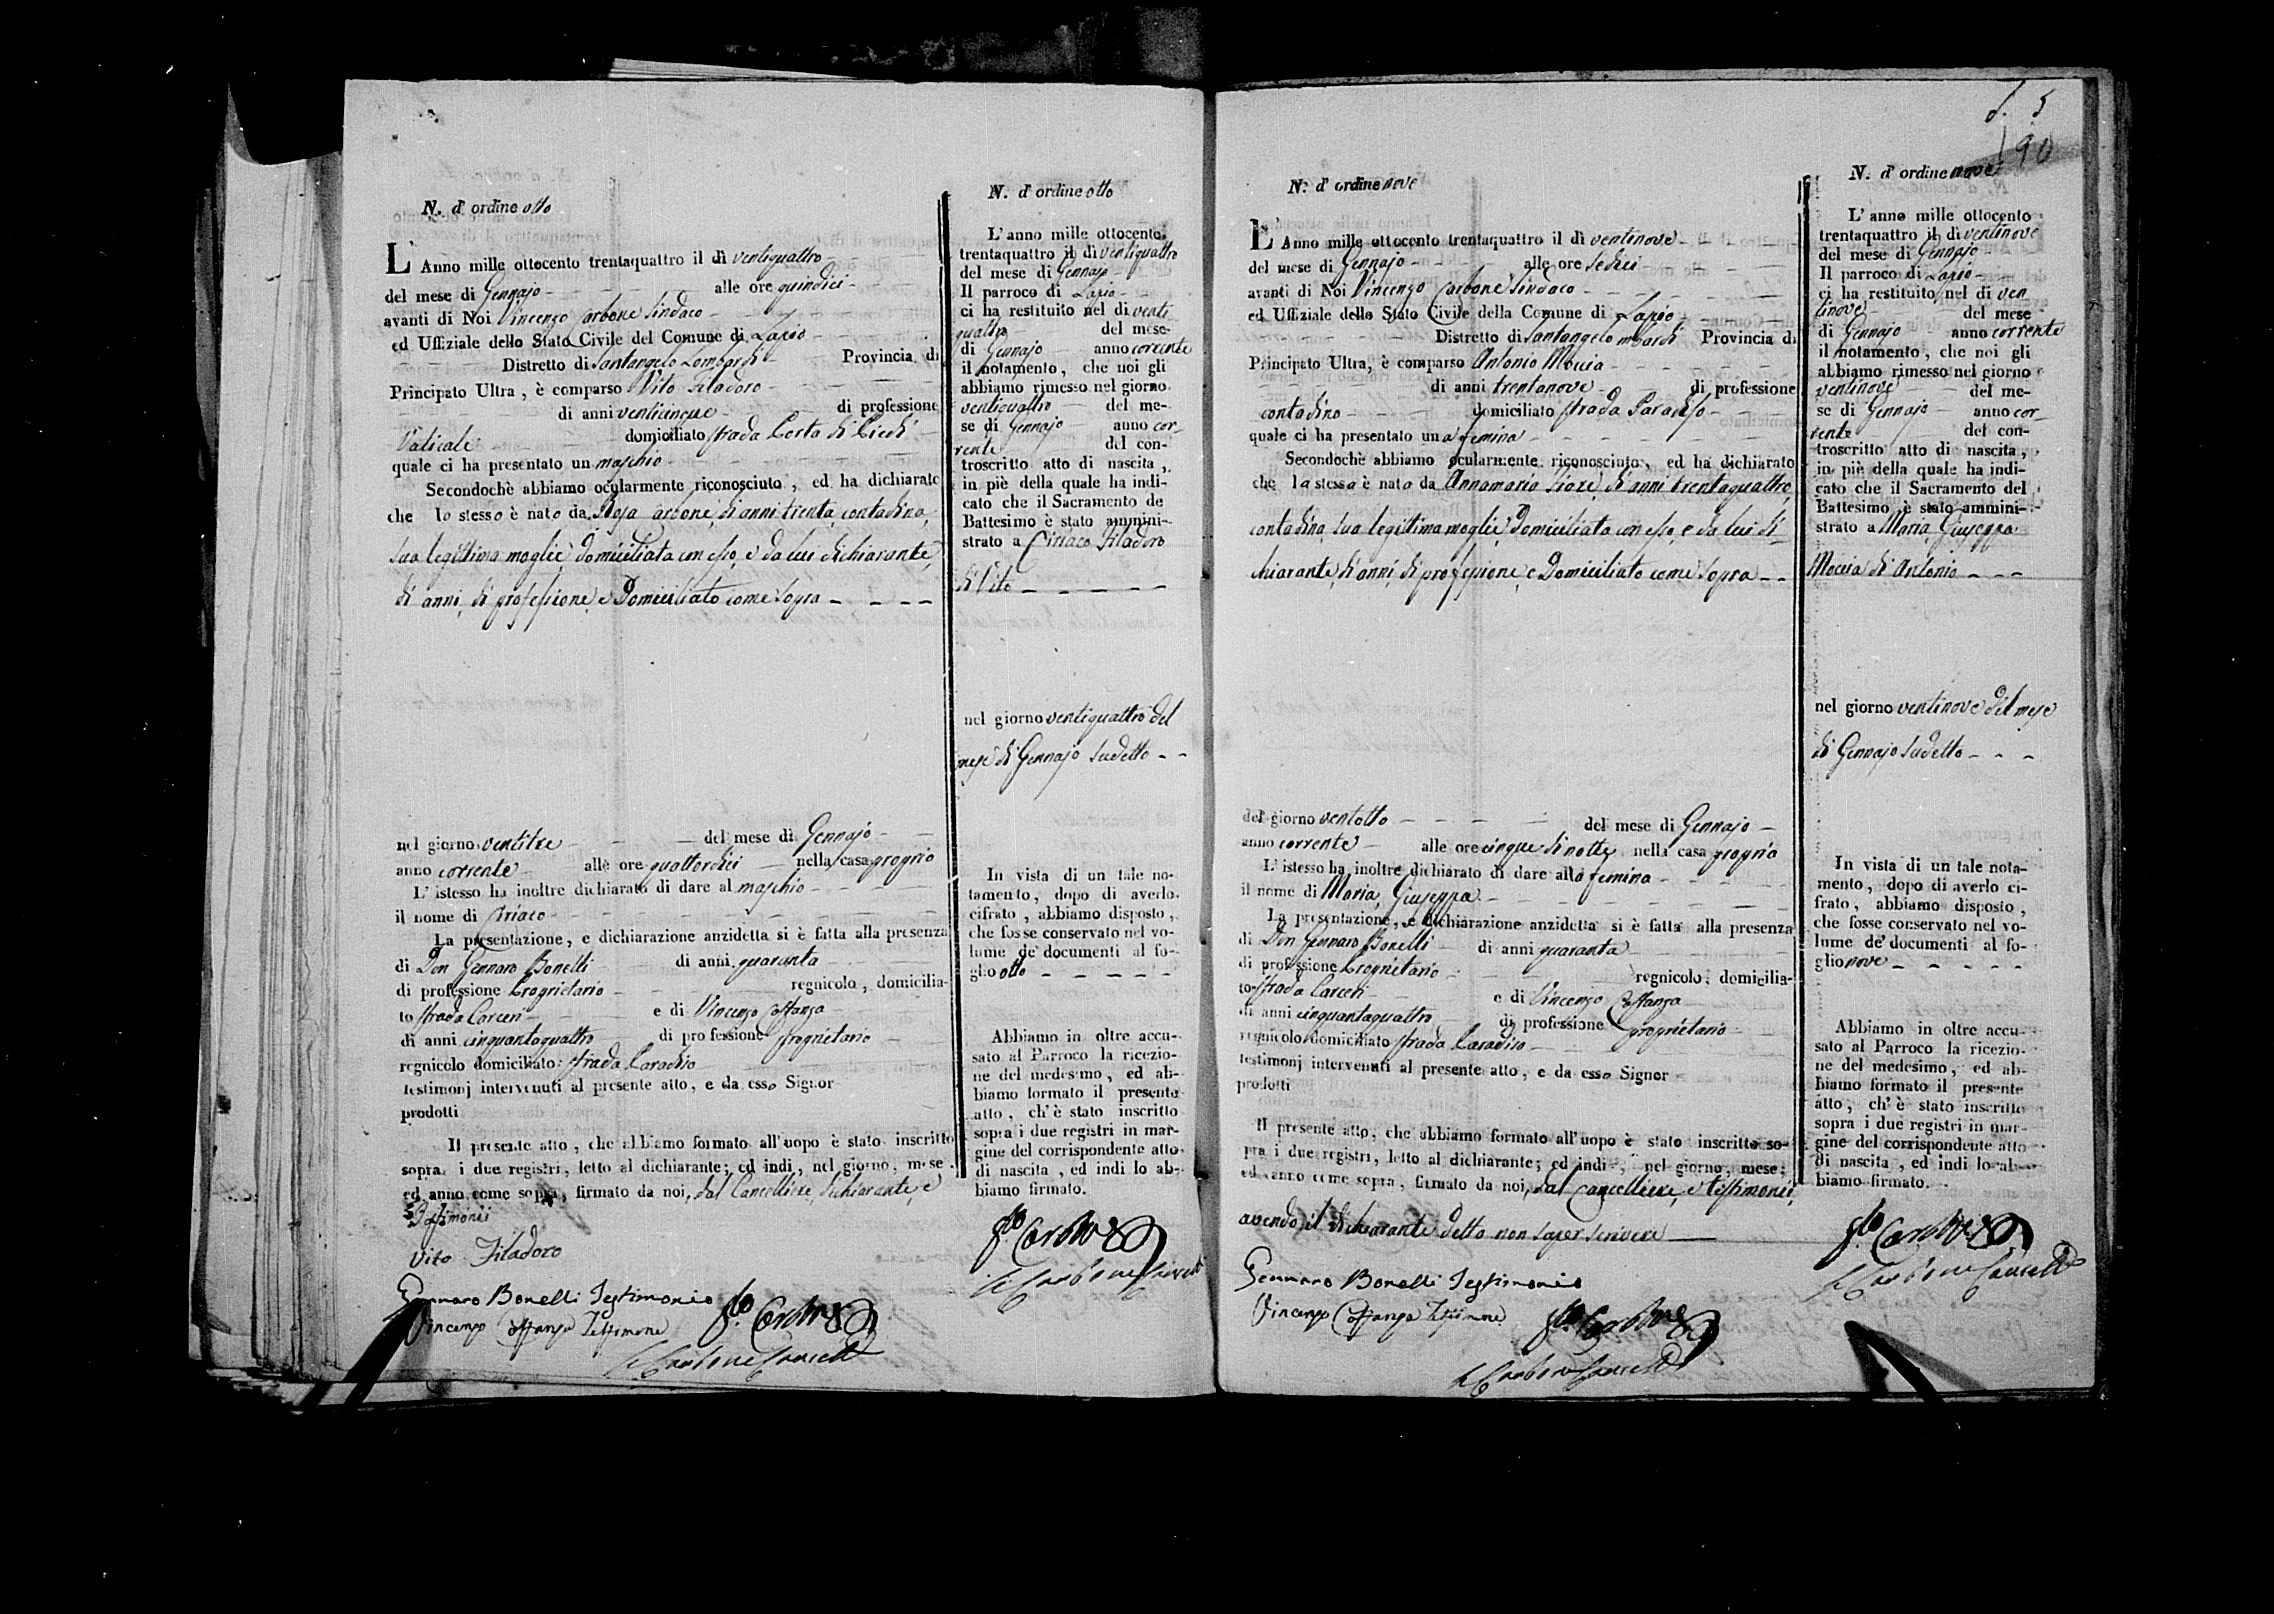 N. d' ordine otto
L' Anno mille ottocento trentaquattro il dì ventiquattro
del mese di Gennajo alle ore quindici
avanti di Noi Vincenzo Carbone Sindaco
ed Uffiziale dello Stato Civile del Comune di Lapio
Distretto di Santangelo Lombardi Provincia di
Principato Ultra, è comparso Vito Filadoro
di anni venticinque di professione
Vaticale domiciliato strada Porta di Piedi
quale ci ha presentato un maschio
Secondochè abbiamo ocularmente riconosciuto, ed ha dichiarato
che lo stesso è nato da Rosa Carbone, di anni trenta, contadina,
sua legittima moglie, domiciliata con esso, e da lui dichiarante,
di anni, di professione, e Domiciliato come sopra
nel giorno ventitre del mese di Gennajo
anno corrente alle ore quattordici nella casa propria
L' istesso ha inoltre dichiarato di dare al maschio
il nome di Ciriaco
La presentazione, e dichiarazione anzidetta si è fatta alla presenza
di Don Gennaro Bonelli di anni quaranta
di professione Proprietario regnicolo, domicilia-
to strada Carceri e di Vincenzo Costanza
di anni cinquantaquattro di professione proprietario
regnicolo domiciliato strada Paradiso
testimonj intervenuti al presente atto, e da esso Signor
prodotti
Il presente atto, che abbiamo formato all'uopo è stato inscritto
sopra i due registri, letto al dichiarante; ed indi, nel giorno, mese,
ed anno come sopra, firmato da noi, dal Cancelliere, dichiarante, e
Testimonii
Vito Filadoro
Gennaro Bonelli Testimonio
Vincenzo Costanza Testimone
Carbone
N. d' ordine otto
L' anno mille ottocento
trentaquattro il dì ventiquattro
del mese di Gennajo
Il parroco di Lapio
ci ha restituito nel dì venti
quattro del mese
di Gennajo anno corrente
il notamento, che noi gli
abbiamo rimesso nel giorno
ventiquattro del me-
se di Gennajo anno cor-
rente del con-
troscritto atto di nascita,
in piè della quale ha indi-
cato che il Sacramento de
Battesimo è stato ammini-
strato a Ciriaco Filadoro
di Vito
nel giorno ventiquattro del
mese di Gennajo sudetto
In vista di un tale no-
tamento, dopo di averlo
cifrato, abbiamo disposto,
che fosse conservato nel vo-
lume de' documenti al fo-
glio otto
Abbiamo in oltre accu-
sato al Parroco la ricezio-
ne del medesimo, ed ab-
biamo formato il presente
atto, ch'è stato inscritto
sopra i due registri in mar-
gine del corrispondente atto
di nascita, ed indi lo ab-
biamo firmato.
Carbone
5
90
N. d' ordine nove
L' Anno mille ottocento trentaquattro il dì ventinove
del mese di Gennajo alle ore sedici
avanti di Noi Vincenzo Carbone Sindaco
ed Uffiziale dello Stato Civile della Comune di Lapio
Distretto di Santangelo Lombardi Provincia di
Principato Ultra, è comparso Antonio Moccia
di anni trentanove di professione
contadino domiciliato strada Paradiso
quale ci ha presentato una femina
Secondochè abbiamo ocularmente riconosciuto, ed ha dichiarato
che la stessa è nata da Annamaria Fiore, di anni trentaquattro,
contadina, sua legittima moglie, Domiciliata con esso, e da lui di-
chiarante, di anni, di professione, e Domiciliato come sopra
del giorno ventotto del mese di Gennajo
anno corrente alle ore cinque di notte, nella casa propria
L' istesso ha inoltre dichiarato di dare alla femina
il nome di Maria Giuseppa
La presentazione, e dichiarazione anzidetta si è fatta alla presenza
di Don Gennaro Bonelli di anni quaranta
di professione Proprietario regnicolo, domicilia-
to strada Carceri e di Vincenzo Costanza
di anni cinquantaquattro di professione proprietario
regnicolo domiciliato strada Paradiso
testimonj intervenuti al presente atto, e da esso Signor
prodotti
Il presente atto, che abbiamo formato all'uopo è stato inscritto so-
pra i due registri, letto al dichiarante; ed indi, nel giorno, mese,
ed anno come sopra, firmato da noi, dal cancelliere, e testimonii,
avendo il dichiarante detto non saper scrivere
Gennaro Bonelli Testimonio
Vincenzo Costanza Testimone
Carbone
N. d' ordine nove
L' anno mille ottocento
trentaquattro il dì ventinove
del mese di Gennajo
Il parroco di Lapio
ci ha restituito nel dì ven
tinove del mese
di Gennajo anno corrente
il notamento, che noi gli
abbiamo rimesso nel giorno
ventinove del me-
se di Gennajo anno cor-
rente del con-
troscritto atto di nascita,
in piè della quale ha indi-
cato che il Sacramento del
Battesimo è stato ammini-
strato a Maria Giuseppa
Moccia di Antonio
nel giorno ventinove del mese
di Gennajo sudetto
In vista di un tale nota-
mento, dopo di averlo ci-
frato, abbiamo disposto,
che fosse conservato nel vo-
lume de' documenti al fo-
glio nove
Abbiamo in oltre accu-
sato al Parroco la ricezio-
ne del medesimo, ed ab-
biamo formato il presente
atto, ch'è stato inscritto
sopra i due registri in mar-
gine del corrispondente atto
di nascita, ed indi lo ab-
biamo firmato.
Carbone